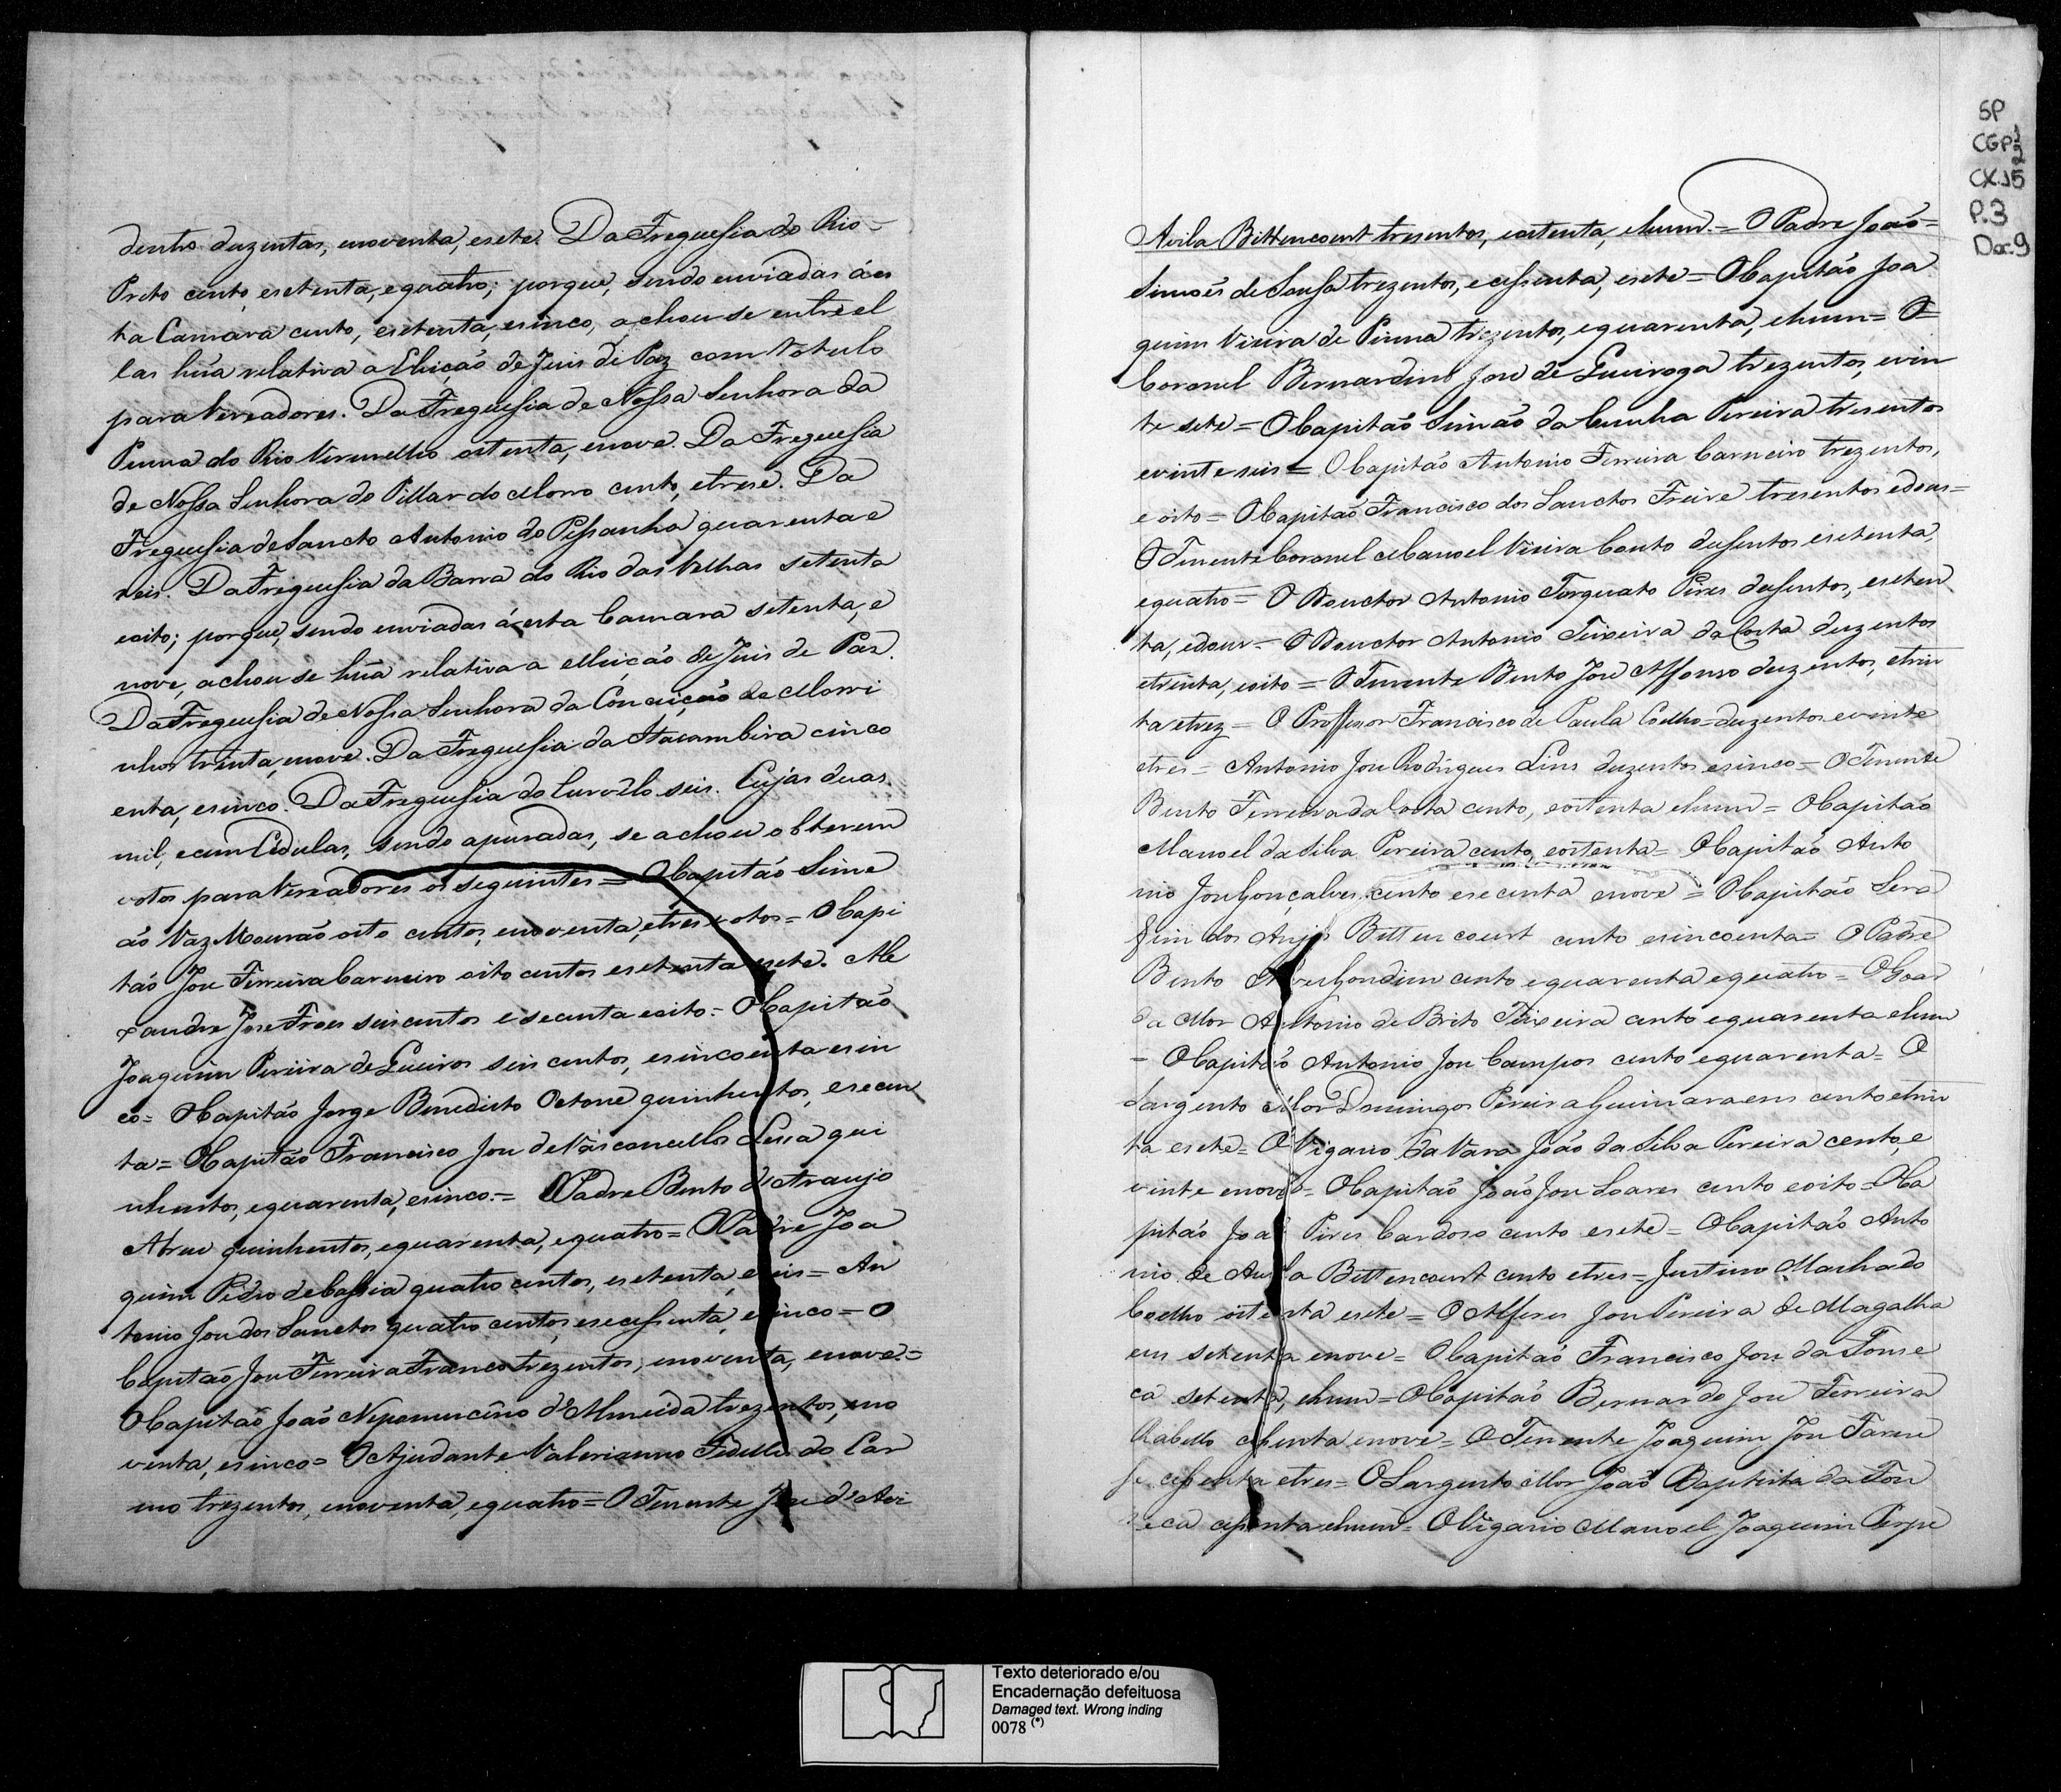 dentro duzentas, enoventa, esete. Da Freguesia do Rio-
Preto cento, esetenta, equatro; porque, sendo enviadas á es
ta Camara cento, esetenta, esinco, achou se entre el
las hũa relativa a Eleição de Juis de Paz com rotulo
para Vereadores. Da Freguesia de Nossa Senhora da
Penna do Rio Vermelho oitenta, enove. Da Freguesia
de Nossa Senhora do Pillar do Morro cento, etrese. Da
Freguesia de Sancto Antonio do Pessanha quarenta e
seis. Da Freguesia da Barra do Rio das Velhas setenta
eoito; porque, sendo enviadas á esta Camara setenta, e
nove, achou se hũa relativa a elleição de Juis de Paz.
Da Freguesia de Nossa Senhora da Conceição de Morri
nhos trinta, enove. Da Freguesia da Itacambira cinco
enta, esinco. Da Freguesia do Curvêlo seis. Cujas duas
mil, ecem Cédulas, sendo apuradas, se achou obterem
votos para Vereadores os seguintes = O Capitão Sime
ão Vaz Mourão oito centos, enoventa, etres votos = O Capi
tão Joze Ferreira Carneiro oito centos esetenta esete. Ale
xandre Jose Froes seis centos e secenta eoito = O Capitão
Joaquim Pereira de Queiros seis centos, esincoenta esin
co = O Capitão Jorge Benedicto Ottone quinhentos, esecen
ta = O Capitão Francisco Joze de Vasconcellos Lessa qui
nhentos, equarenta, esinco. = O Padre Bento de Araujo
Abreu quinhentos, equarenta, equatro = O Padre Joa
quim Pedro de Cassia quatro centos, esetenta, eseis = An
tonio Joze dos Sanctos quatro centos, esecessenta, esinco = O
Capitão Joze Ferreira Franco trezentos, enoventa, enove. =
O Capitão João Nepomuceno d'Almeida trezentos, eno
venta, esinco = O Ajudante Valerianno Fidelles do Car
mo trezentos, enoventa, equatro = O Tenente Joze d'Avi
Avila Bittencourt tresentos, eoitenta, ehum = O Padre João =
Simoes de Sousa trezentos, ecessenta, esete = O Capitão Joa
quim Vieira de Pinna trezentos, equarenta, ehum = O =
Coronel Bernardino Joze de Queiroga trezentos, evin
te sete = O Capitão Simão da Cunha Pereira tresentos
evinte seis = O Capitão Antonio Ferreira Carneiro trezentos,
e oito = O Capitão Francisco dos Sanctos Freire tresentos edous =
O Tenente Coronel Manoel Vieira Couto dusentos esetenta,
equatro = O Douctor Antonio Torquato Pires dusentos, eseten
ta, edous = O Douctor Antonio Teixeira da Costa duzentos
etrinta, eoito = O Tenente Bento Joze Affonso duzentos, etrin
ta etrez = O Proffessor Francisco de Paula Coelho = duzentos evinte
etres = Antonio Joze Rodrigues Lins duzentos esinco = O Tenente
Bento Ferreira da Costa cento, eoitenta ehum = O Capitão
Manoel da Silva Pereira cento, eoitenta = O Capitão Anto
nio Joze Gonçalves cento esecenta enove = O Capitão Sera
fim dos Anjos Bittencourt cento esincoenta = O Padre
Bento Alves Gondim cento equarenta equatro = O Goar
da Mor Antonio de Brito Teixeira cento equarenta ehum
= O Capitão Antonio Joze Campos cento equarenta = O
Sargento Mor Domingos Pereira Guimaraens cento etrin
ta esete = O Vigario da Vara João da Silva Pereira cento, e
vinte enove = O Capitão João Joze Soares cento eoito = O Ca
pitão João Pires Cardoso cento esete = O Capitão Anto
nio de Avila Bittencourt cento etres = Justino Machado
Coelho oitenta esete = O Alferes Joze Pereira de Magalha
ens setenta enove = O Capitão Francisco Joze da Fonse
ca setenta, ehum = O Capitão Bernardo Joze Ferreira
Rabello cessenta enove = O Tenente Joaquim Joze Farne
se cessenta etres = O Sargento Mor João Baptista da Fon
seca cessenta ehum = O Vigario Manoel Joaquim Perpe
SP
CGP 1/2
CX.15
P.3
Doc.9
Texto deteriorado e/ou
Encadernação defeituosa
Damaged text. Wrong inding
0078 (*)